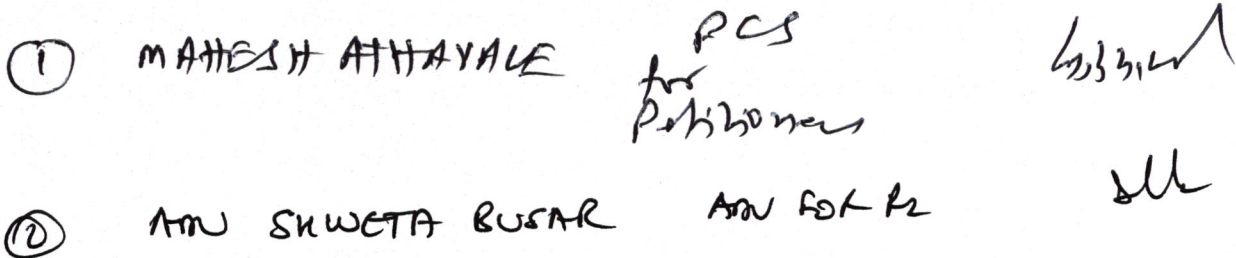 ① MAHESH ATHAVALE PCS for Petitioners
② ADV SHWETA BUSAR ADV FOR R2